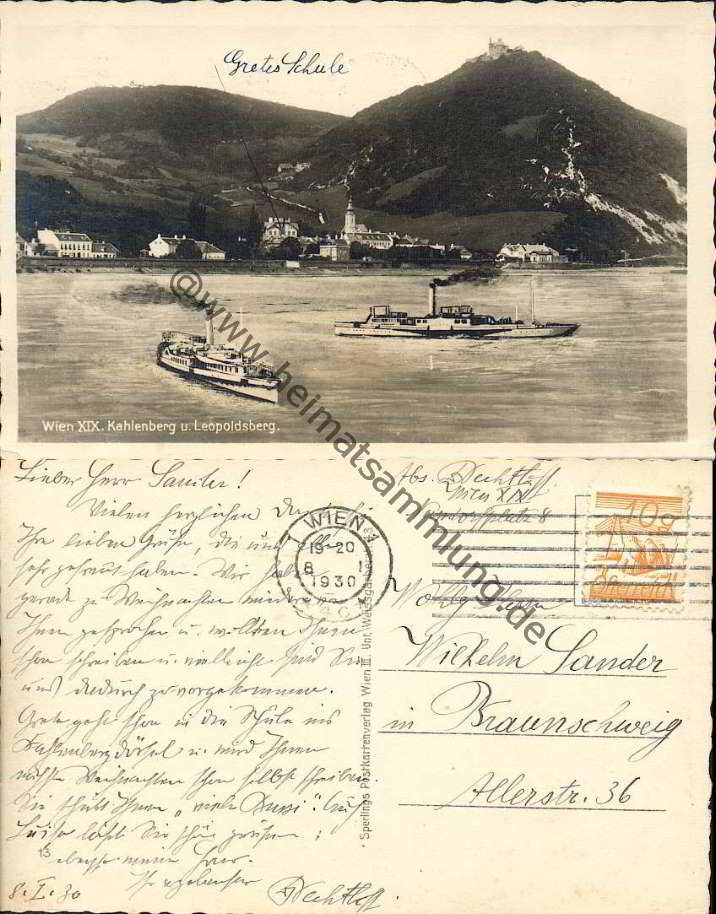 Gretes Schule
Wien XIX. Kahlenberg u. Leopoldsberg.
@www.heimatsammlung.de
Lieber Herr Sander!
Vielen herzlichen Dank für
Ihre lieben Grüße, die uns alle
sehr gefreut haben. Wir haben
gerade zu Weihnachten wieder von
Ihnen gesprochen u. wollten Ihnen
schon schreiben u. vielleicht sind Sie
uns dadurch zuvorgekommen.
Grete geht schon in die Schule ins
Kahlenbergdörfel u. wird Ihnen
nächste Weihnachten schon selbst schreiben.
Sie schickt Ihnen „viele Bussi“. Auch
läßt Sie schön grüßen
ebenso meine Frau.
Ihr ergebenster
8. I. 30 Bechtloff
Abs. Bechtloff
Wien XIX
8
WIEN
19-20
8 I
1930
10g
Wohlgeboren
Wilhelm Sander
in Braunschweig
Allerstr. 36
Sperlings Postkartenverlag Wien III. Unt. Weissgerberstr.